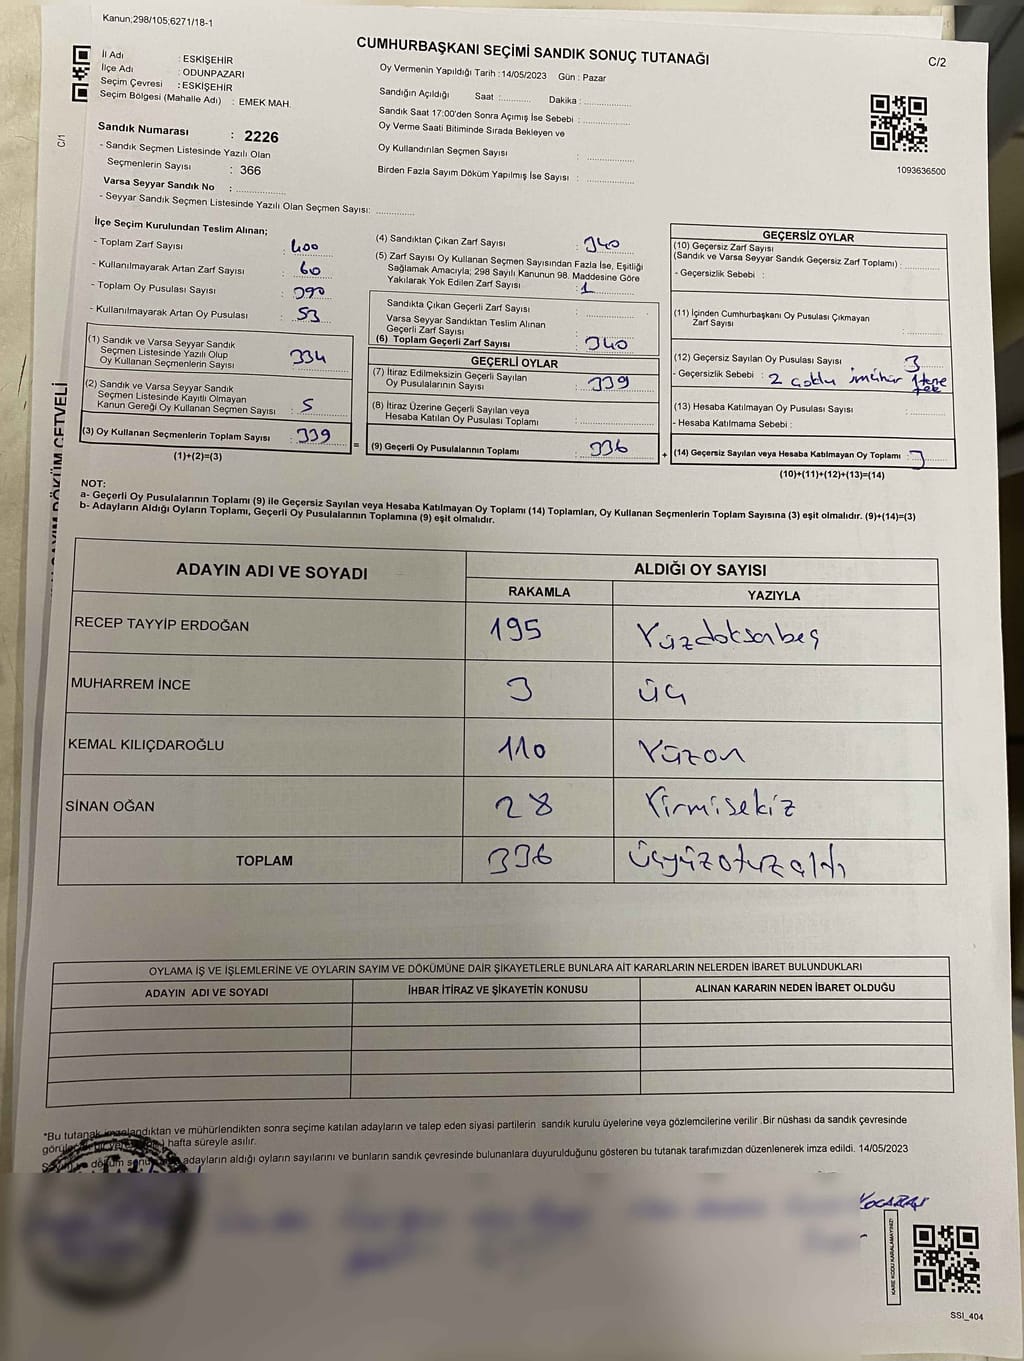 Kanun;298/105;6271/18-1
CUMHURBAŞKANI SEÇİMİ SANDIK SONUÇ TUTANAĞI
C/2
İl Adı : ESKİŞEHİR
İlçe Adı : ODUNPAZARI
Seçim Çevresi : ESKİŞEHİR
Seçim Bölgesi (Mahalle Adı) : EMEK MAH.
Oy Vermenin Yapıldığı Tarih :14/05/2023 Gün : Pazar
Sandığın Açıldığı Saat :.......... Dakika :...............
Sandık Saat 17:00'den Sonra Açımış İse Sebebi :...............
Oy Verme Saati Bitiminde Sırada Bekleyen ve
Oy Kullandırılan Seçmen Sayısı :...............
Birden Fazla Sayım Döküm Yapılmış İse Sayısı :...............
1093636500
C/1
Sandık Numarası : 2226
- Sandık Seçmen Listesinde Yazılı Olan
Seçmenlerin Sayısı : 366
Varsa Seyyar Sandık No :...............
- Seyyar Sandık Seçmen Listesinde Yazılı Olan Seçmen Sayısı:............
İlçe Seçim Kurulundan Teslim Alınan;
- Toplam Zarf Sayısı : 400
- Kullanılmayarak Artan Zarf Sayısı : 60
- Toplam Oy Pusulası Sayısı : 390
- Kullanılmayarak Artan Oy Pusulası : 53
(1) Sandık ve Varsa Seyyar Sandık
Seçmen Listesinde Yazılı Olup
Oy Kullanan Seçmenlerin Sayısı : 334
(2) Sandık ve Varsa Seyyar Sandık
Seçmen Listesinde Kayıtlı Olmayan
Kanun Gereği Oy Kullanan Seçmen Sayısı : 5
(3) Oy Kullanan Seçmenlerin Toplam Sayısı : 339
(1)+(2)=(3)
(4) Sandıktan Çıkan Zarf Sayısı : 340
(5) Zarf Sayısı Oy Kullanan Seçmen Sayısından Fazla İse, Eşitliği
Sağlamak Amacıyla; 298 Sayılı Kanunun 98. Maddesine Göre
Yakılarak Yok Edilen Zarf Sayısı : 1
Sandıkta Çıkan Geçerli Zarf Sayısı :...............
Varsa Seyyar Sandıktan Teslim Alınan
Geçerli Zarf Sayısı :...............
(6) Toplam Geçerli Zarf Sayısı : 340
GEÇERLİ OYLAR
(7) İtiraz Edilmeksizin Geçerli Sayılan
Oy Pusulalarının Sayısı : 339
(8) İtiraz Üzerine Geçerli Sayılan veya
Hesaba Katılan Oy Pusulası Toplamı :...............
= (9) Geçerli Oy Pusulalarının Toplamı : 336 +
GEÇERSİZ OYLAR
(10) Geçersiz Zarf Sayısı
(Sandık ve Varsa Seyyar Sandık Geçersiz Zarf Toplamı) :............
- Geçersizlik Sebebi :
(11) İçinden Cumhurbaşkanı Oy Pusulası Çıkmayan
Zarf Sayısı :............
(12) Geçersiz Sayılan Oy Pusulası Sayısı : 3
- Geçersizlik Sebebi : 2 çoklu mühür 1 tane
(13) Hesaba Katılmayan Oy Pusulası Sayısı :............
- Hesaba Katılmama Sebebi :
(14) Geçersiz Sayılan veya Hesaba Katılmayan Oy Toplamı : 3
(10)+(11)+(12)+(13)=(14)
SAYIM DÖKÜM CETVELİ
NOT:
a- Geçerli Oy Pusulalarının Toplamı (9) ile Geçersiz Sayılan veya Hesaba Katılmayan Oy Toplamı (14) Toplamları, Oy Kullanan Seçmenlerin Toplam Sayısına (3) eşit olmalıdır. (9)+(14)=(3)
b- Adayların Aldığı Oyların Toplamı, Geçerli Oy Pusulalarının Toplamına (9) eşit olmalıdır.
ADAYIN ADI VE SOYADI
ALDIĞI OY SAYISI
RAKAMLA YAZIYLA
RECEP TAYYİP ERDOĞAN 195 Yüzdoksanbeş
MUHARREM İNCE 3 üç
KEMAL KILIÇDAROĞLU 110 Yüzon
SİNAN OĞAN 28 Yirmisekiz
TOPLAM 336 üçyüzotuzaltı
OYLAMA İŞ VE İŞLEMLERİNE VE OYLARIN SAYIM VE DÖKÜMÜNE DAİR ŞİKAYETLERLE BUNLARA AİT KARARLARIN NELERDEN İBARET BULUNDUKLARI
ADAYIN ADI VE SOYADI İHBAR İTİRAZ VE ŞİKAYETİN KONUSU ALINAN KARARIN NEDEN İBARET OLDUĞU
*Bu tutanak imzalandıktan ve mühürlendikten sonra seçime katılan adayların ve talep eden siyasi partilerin sandık kurulu üyelerine veya gözlemcilerine verilir .Bir nüshası da sandık çevresinde
hafta süreyle asılır.
adayların aldığı oyların sayılarını ve bunların sandık çevresinde bulunanlara duyurulduğunu gösteren bu tutanak tarafımızdan düzenlenerek imza edildi. 14/05/2023
KARE KODU KARALAMAYINIZ!
SSI_404